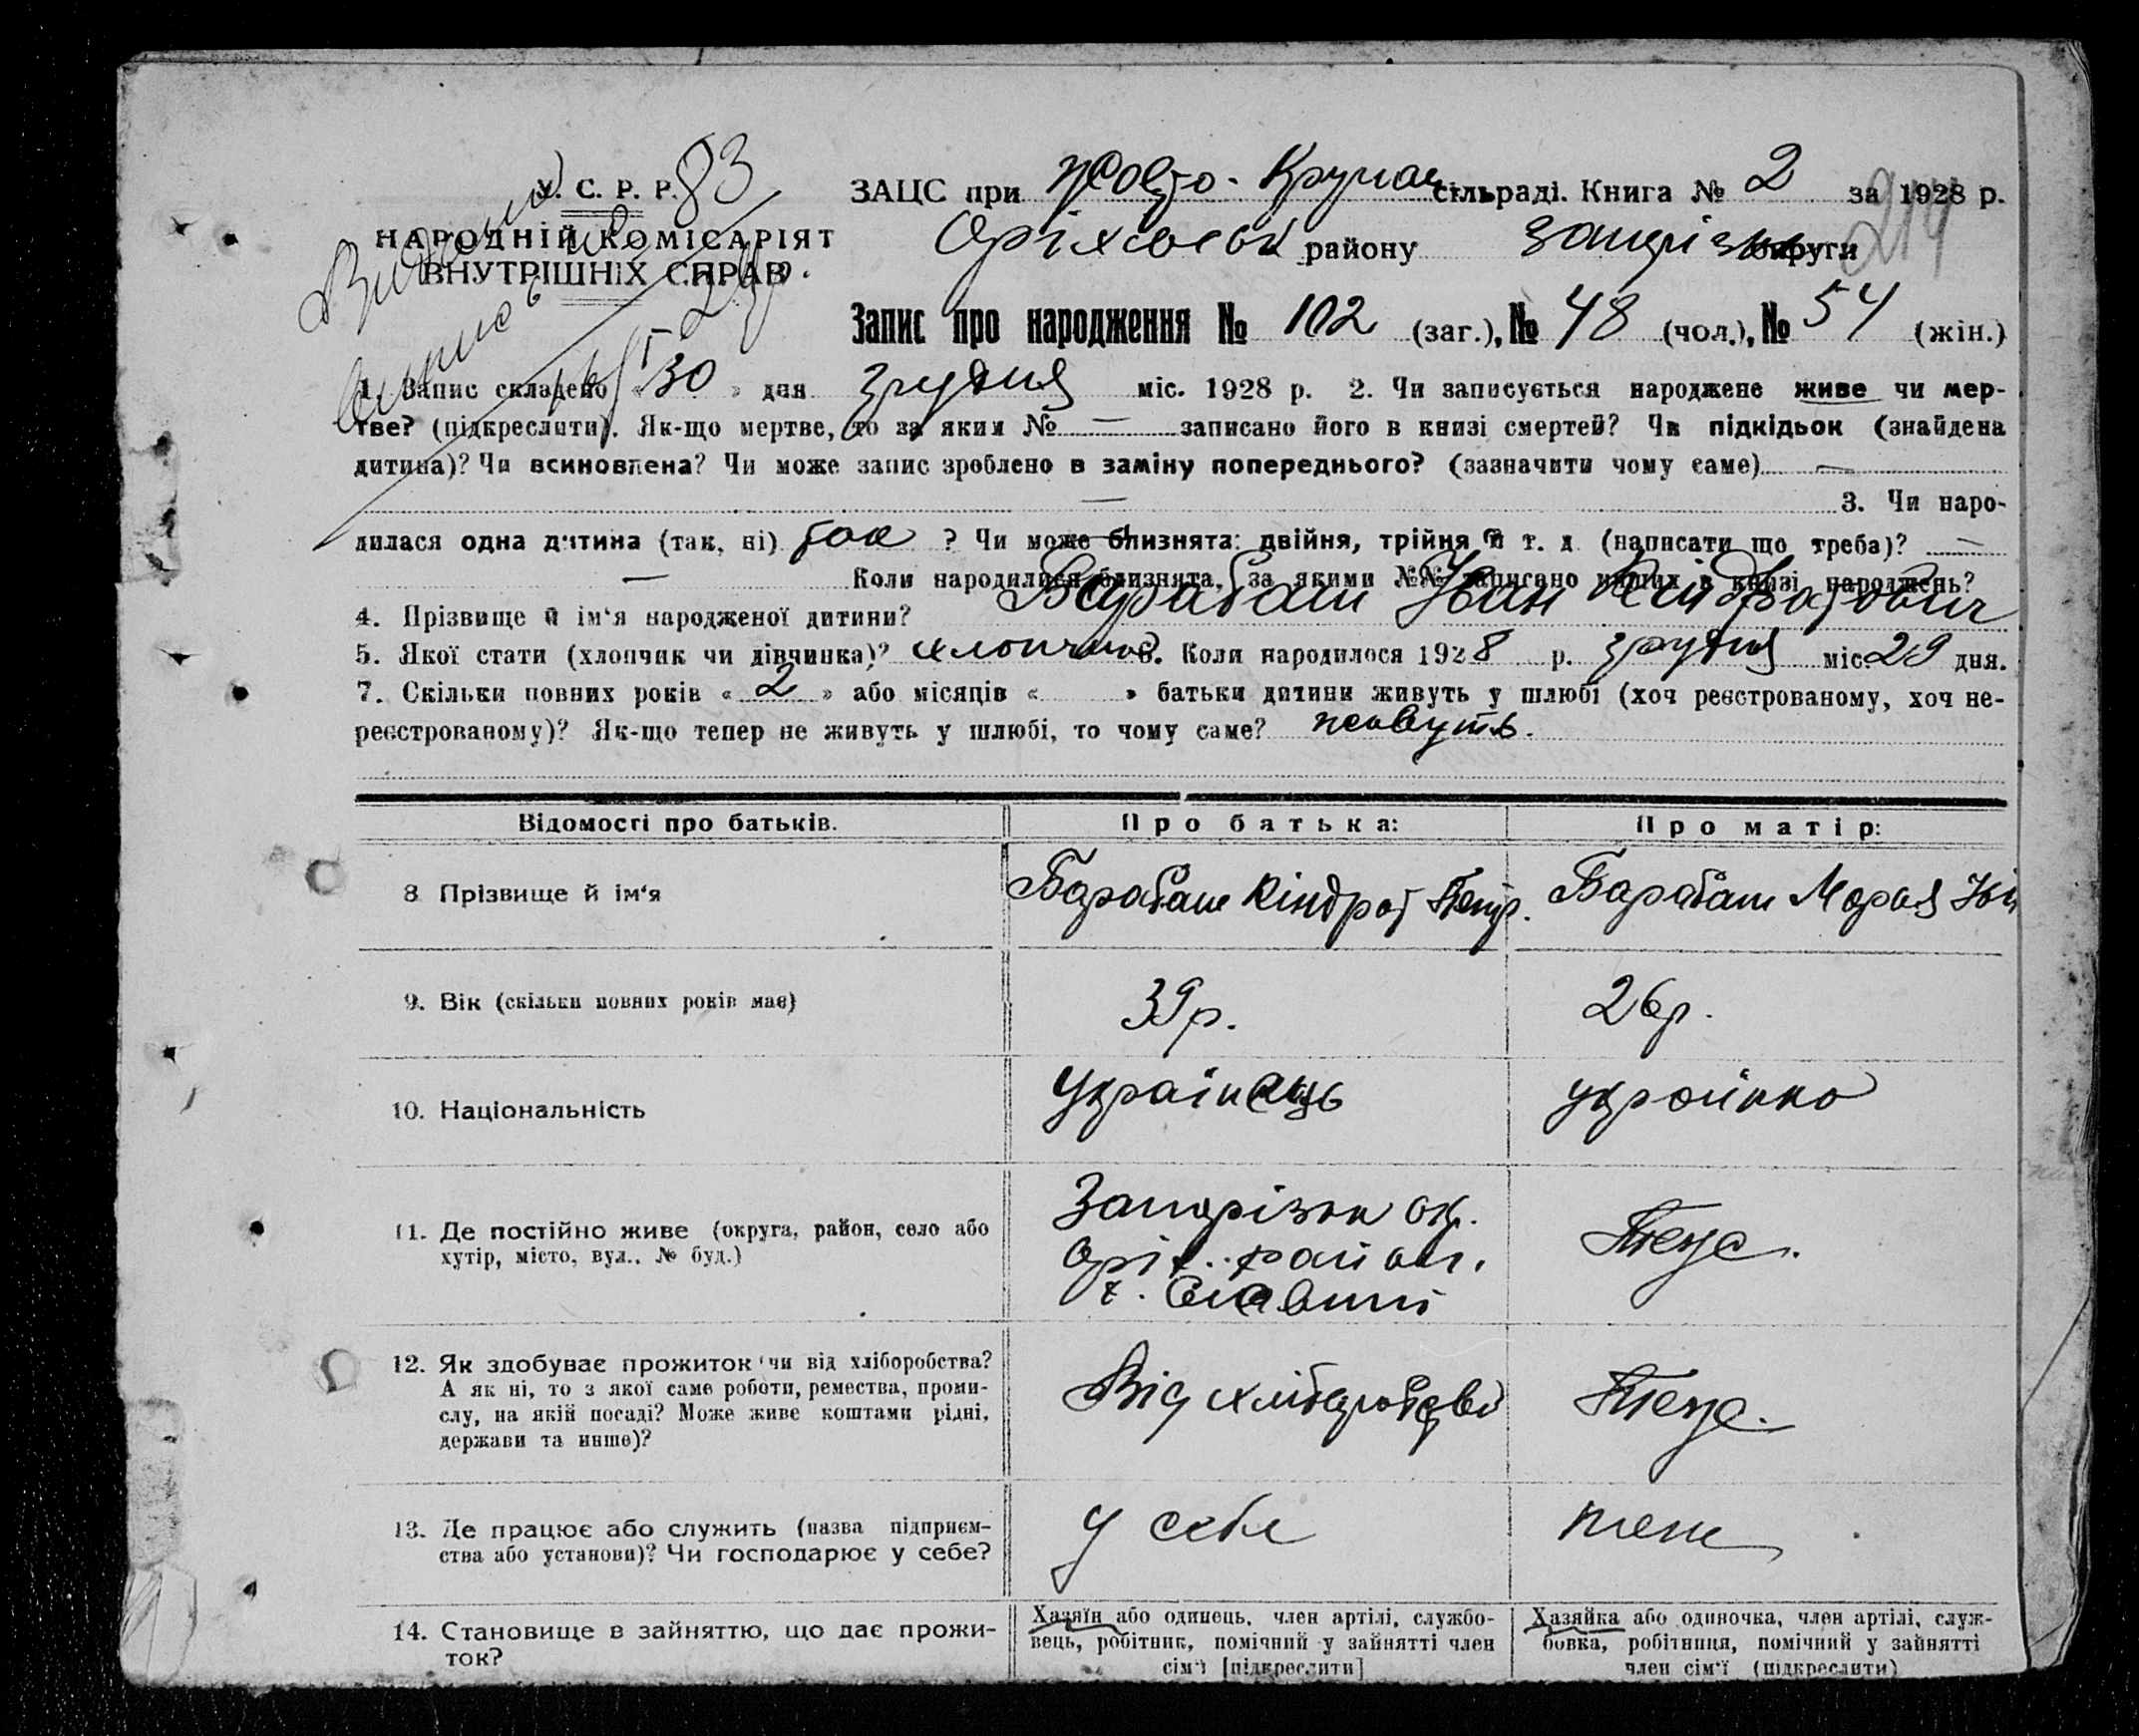 У. С. Р. Р. 83
НАРОДНІЙ КОМІСАРІЯТ
ВНУТРІШНІХ СПРАВ
ЗАЦС при Жовто-Круча сільраді. Книга № 2 за 1928 р.
Оріхівськ району Запріз округи 214
Запис про народження № 102 (заг.), № 48 (чол.), № 54 (жін.)
1. Запис складено « 30 » дня грудня міс. 1928 р. 2. Чи записується народжене живе чи мер-
тве? (підкреслити). Як-що мертве, то за яким № — записано його в книзі смертей? Чи підкідьок (знайдена
дитина)? Чи всиновлена? Чи може запис зроблено в заміну попереднього? (зазначити чому саме) —
— 3. Чи наро-
дилася одна дитина (так, ні) так ? Чи може близнята: двійня, трійня й т. д. (написати що треба)? —
— Коли народилися близнята, за якими №№ записано инших в книзі народжень?
4. Прізвище й ім'я народженої дитини? Барабаш Іван Кіндратович
5. Якої стати (хлопчик чи дівчинка)? хлопчик 6. Коли народилося 1928 р. грудня міс 29 дня.
7. Скільки повних років « 2 » або місяців « » батьки дитини живуть у шлюбі (хоч реєстрованому, хоч не-
реєстрованому)? Як-що тепер не живуть у шлюбі, то чому саме? живуть.
Відомості про батьків. Про батька: Про матір:
8 Прізвище й ім'я Барабаш Кіндрат Петр. Барабаш Мария Ів
9. Вік (скільки повних років має) 39 р. 26 р.
10. Національність Українець українка
11. Де постійно живе (округа, район, село або
хутір, місто, вул.. № буд.)
Запорізьк окр.
Оріх. район.
х.
Теже.
12. Як здобуває прожиток чи від хліборобства?
А як ні, то з якої саме роботи, ремества, проми-
слу, на якій посаді? Може живе коштами рідні,
держави та инше)?
Від хліборобства
Теже.
13. Де працює або служить (назва підприєм-
ства або установи)? Чи господарює у себе?
У себе
теже
14. Становище в зайняттю, що дає прожи-
ток?
Хазяїн або одинець, член артілі, службо-
вець, робітник, помічний у зайнятті член
сім'ї [підкреслити]
Хазяйка або одиночка, член артілі, служ-
бовка, робітниця, помічний у зайнятті
член сім'ї (підкреслити)